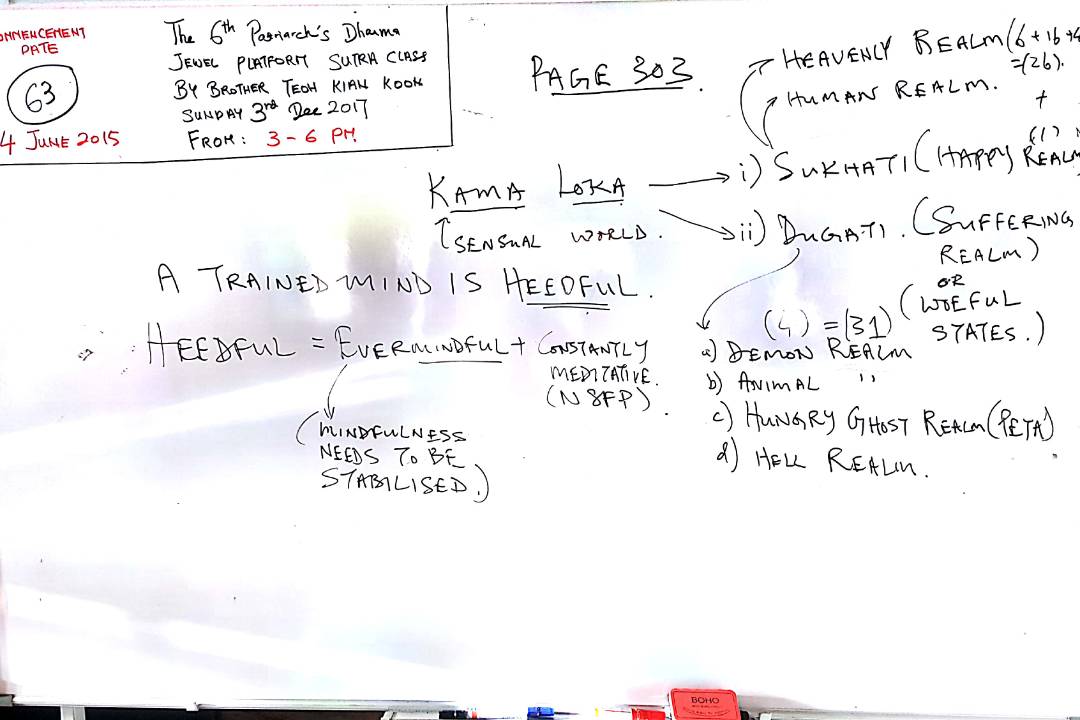 OMMENCEMENT
DATE
63
4 JUNE 2015
The 6th Patriarch's Dharma
JEWEL PLATFORM SUTRA CLASS
BY BROTHER TEOH KIAN KOON
SUNDAY 3rd Dec 2017
FROM: 3-6 PM.
PAGE 303.
HEAVENLY REALM (6+16+4
=(26).
HUMAN REALM. +
(1)
KAMA LOKA → i) SUKHATI (HAPPY REALM
SENSUAL WORLD.
ii) DUGATI. (SUFFERING
REALM)
OR
(WOEFUL
STATES.)
(4) = (31)
a) DEMON REALM
b) ANIMAL "
c) HUNGRY GHOST REALM (PETA)
d) HELL REALM.
A TRAINED MIND IS HEEDFUL.
HEEDFUL = EVERMINDFUL + CONSTANTLY
MEDITATIVE.
(N8FP).
(MINDFULNESS
NEEDS TO BE
STABILISED.)
BOHO